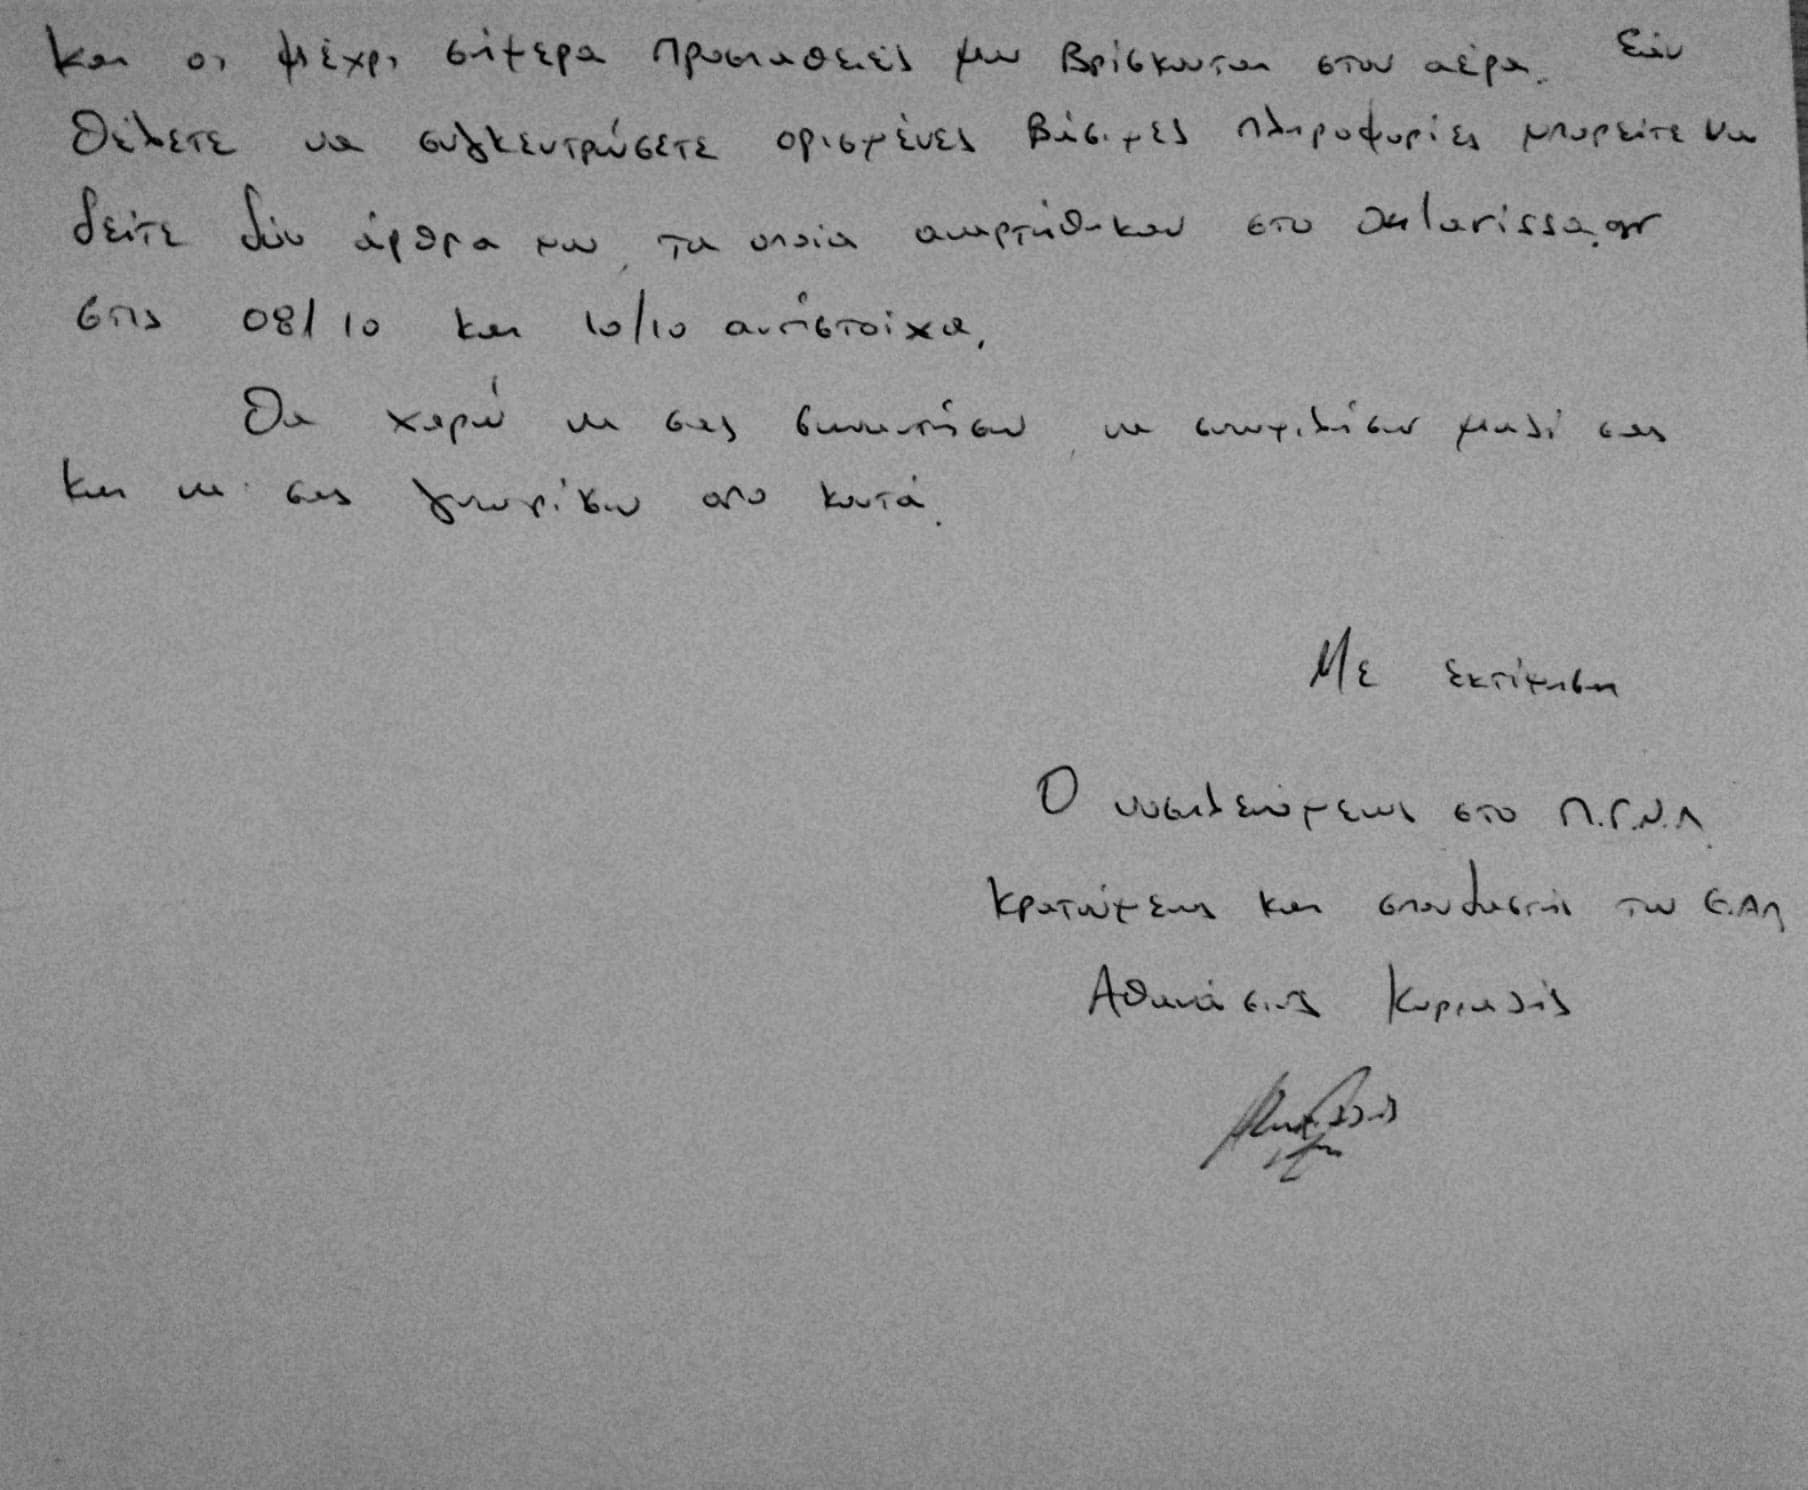 και οι μέχρι σήμερα προσπάθειές μου βρίσκονται στον αέρα. Εάν
θέλετε να συγκεντρώσετε ορισμένες βάσιμες πληροφορίες μπορείτε να
δείτε δύο άρθρα μου, τα οποία αναρτήθηκαν στο onlarissa.gr
στις 08/10 και 10/10 αντίστοιχα.
Θα χαρώ να σας συναντήσω, να συνομιλήσω μαζί σας
και να σας γνωρίσω από κοντά.
Με εκτίμηση
Ο νοσηλευόμενος στο Π.Γ.Ν.Λ.
κρατούμενος και σπουδαστής του Ε.Α.Π
Αθανάσιος Κυριαζής